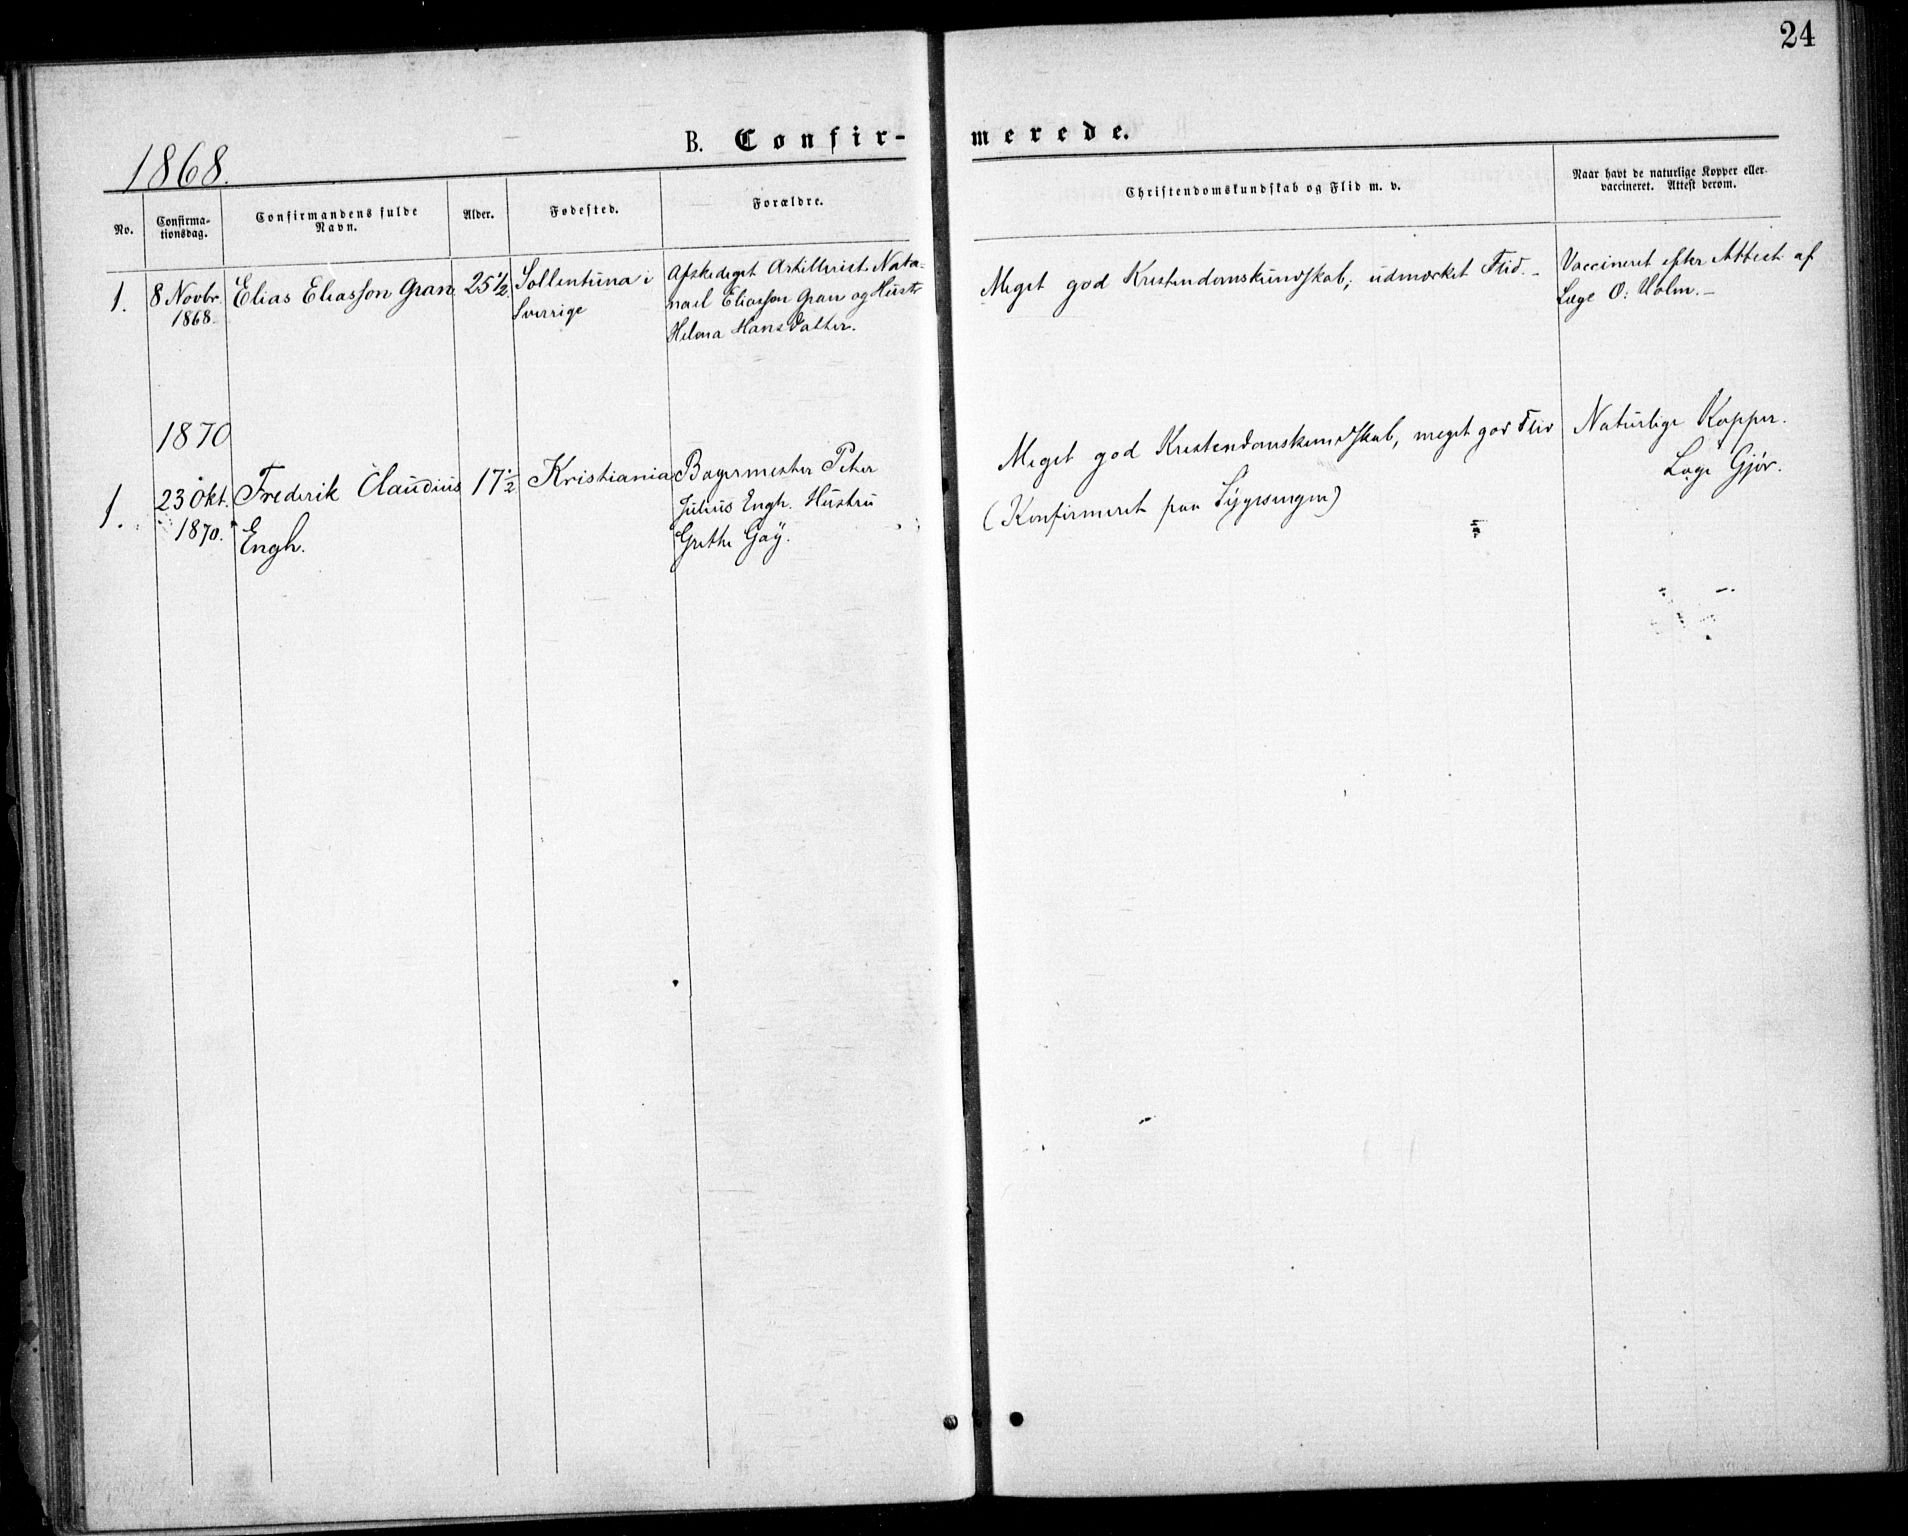 24
B. Confir-
merede.
1868.
No.
Confirma-
tionsdag.
Confirmandens fulde
Navn.
Alder.
Fødested.
Forældre.
Christendomskundskab og Flid m. v.
Naar havt de naturlige Kopper eller
vaccineret. Attest derom.
1.
8 Novbr.
1868.
Elias Eliasson Gran
25 1/2
Sollentuna i
Sverrige
Afskediget Artillerist Nata-
nael Eliasson Gran og Hustr
Helena Hansdatter.
Meget god Kristendomskundskab, udmærket Flid. –
Vaccineret efter Attest af
Læge O: Holm. –
1870
1.
23 Okt.
1870.
Frederik Claudius
Engh.
17 1/2
Kristiania
Bagermester Peter
Julius Engh. Hustru
Grethe Gøy.
Meget god Kristendomskundskab, meget god Flid
(Konfirmeret paa Sygesengen)
Naturlige Kopper.
Læge Gjør.